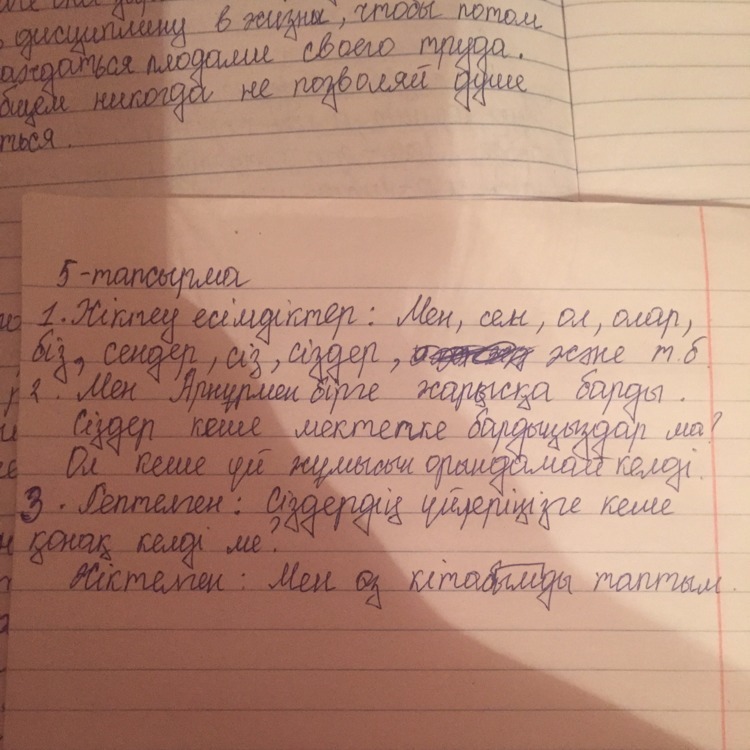 дисциплину в жизни, чтобы потом
аждаться плодами своего труда.
бщем никогда не позволяй душе
ться.
5-тапсырма
1. Жіктеу есімдіктер: Мен, сен, ол, олар,
біз, сендер, сіз, сіздер, және т.б
2. Мен Арнұрмен бірге жарысқа барды.
Сіздер кеше мектепке бардыңыздар ма?
Ол кеше үй жұмысын орындамай келді.
3. Септелген: Сіздердің үйлеріңізге кеше
қонақ келді ме?
Жіктелген: Мен өз кітабымды таптым.